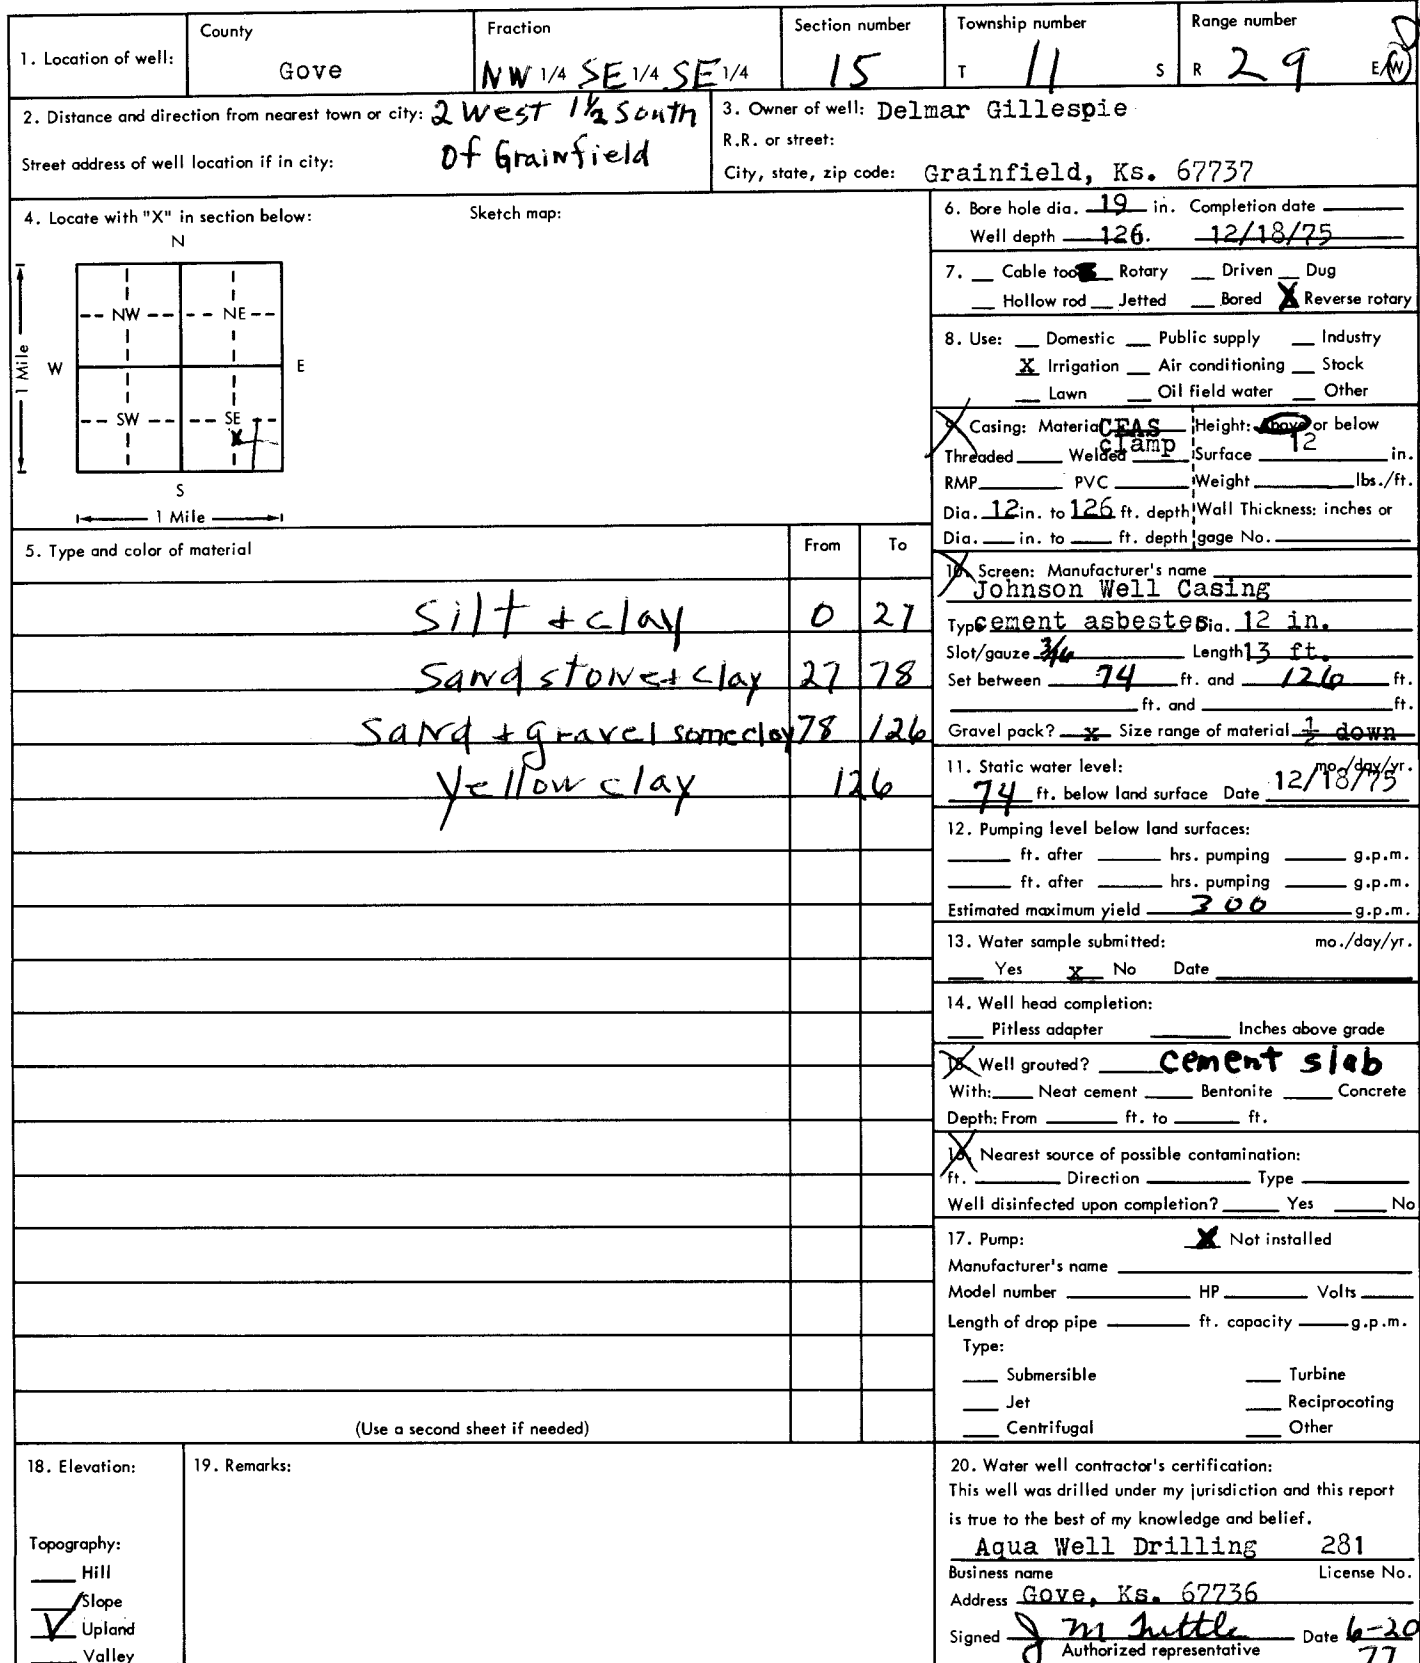 1. Location of well: County Gove Fraction NW 1/4 SE 1/4 SE 1/4 Section number 15 Township number T 11 S Range number R 29 E/W
2. Distance and direction from nearest town or city: 2 West 1½ South
Of Grainfield
Street address of well location if in city:
3. Owner of well: Delmar Gillespie
R.R. or street:
City, state, zip code: Grainfield, Ks. 67737
4. Locate with "X" in section below: Sketch map:
N
NW NE
W E
1 Mile
SW SE
X
S
1 Mile
5. Type and color of material From To
Silt + clay 0 27
Sand stone + clay 27 78
Sand + gravel some clay 78 126
yellow clay 126
(Use a second sheet if needed)
6. Bore hole dia. 19 in. Completion date
Well depth 126. 12/18/75
7. Cable tool Rotary Driven Dug
Hollow rod Jetted Bored X Reverse rotary
8. Use: Domestic Public supply Industry
X Irrigation Air conditioning Stock
Lawn Oil field water Other
9. Casing: Material CEAS Height: Above or below
Threaded Welded clamp Surface 12 in.
RMP PVC Weight lbs./ft.
Dia. 12 in. to 126 ft. depth Wall Thickness: inches or
Dia. in. to ft. depth gage No.
10. Screen: Manufacturer's name
Johnson Well Casing
Type cement asbestes Dia. 12 in.
Slot/gauge 3/16 Length 13 ft.
Set between 74 ft. and 126 ft.
ft. and ft.
Gravel pack? x Size range of material ½ down
11. Static water level: mo./day/yr.
74 ft. below land surface Date 12/18/75
12. Pumping level below land surfaces:
ft. after hrs. pumping g.p.m.
ft. after hrs. pumping g.p.m.
Estimated maximum yield 300 g.p.m.
13. Water sample submitted: mo./day/yr.
Yes x No Date
14. Well head completion:
Pitless adapter Inches above grade
15. Well grouted? cement slab
With: Neat cement Bentonite Concrete
Depth: From ft. to ft.
16. Nearest source of possible contamination:
ft. Direction Type
Well disinfected upon completion? Yes No
17. Pump: X Not installed
Manufacturer's name
Model number HP Volts
Length of drop pipe ft. capacity g.p.m.
Type:
Submersible Turbine
Jet Reciprocoting
Centrifugal Other
18. Elevation:
Topography:
Hill
Slope
✓ Upland
Valley
19. Remarks:
20. Water well contractor's certification:
This well was drilled under my jurisdiction and this report
is true to the best of my knowledge and belief.
Aqua Well Drilling 281
Business name License No.
Address Gove, Ks. 67736
Signed J M Tuttle Date 6-20
Authorized representative 77